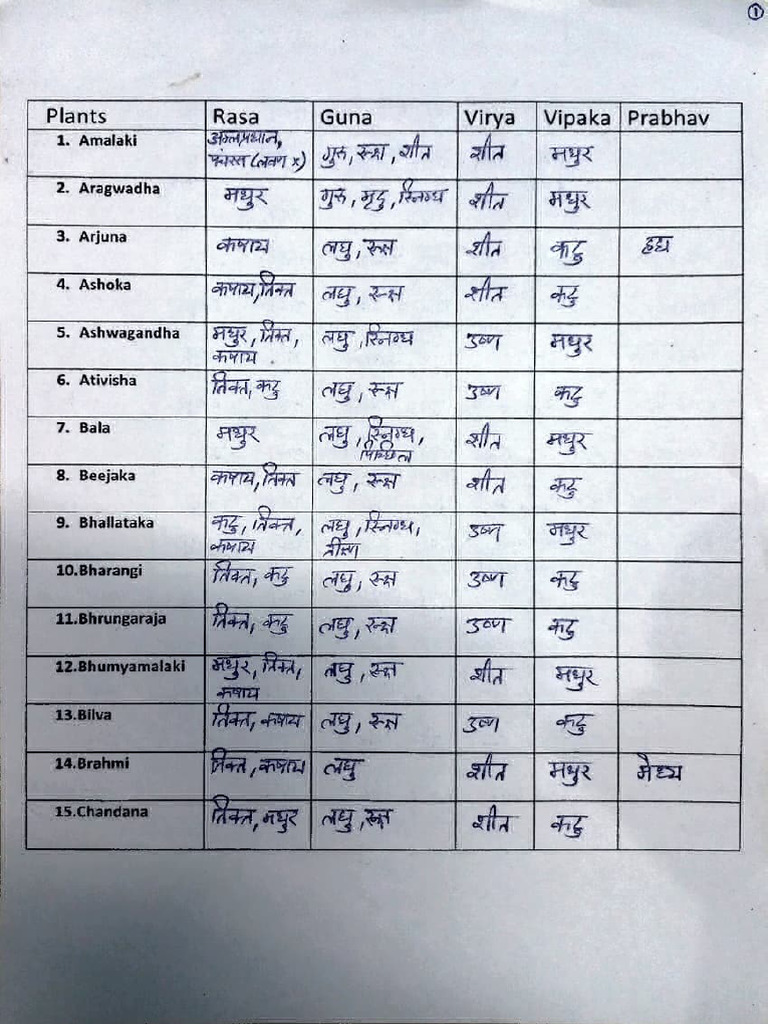 ①
Plants Rasa Guna Virya Vipaka Prabhav
1. Amalaki अम्लप्रधान, गुरु, रुक्ष, शीत शीत मधुर
पंचरस (लवण x)
2. Aragwadha मधुर गुरु, मृदु, स्निग्ध शीत मधुर
3. Arjuna कषाय लघु, रुक्ष शीत कटु हृद्य
4. Ashoka कषाय, तिक्त लघु, रुक्ष शीत कटु
5. Ashwagandha मधुर, तिक्त, लघु, स्निग्ध उष्ण मधुर
कषाय
6. Ativisha तिक्त, कटु लघु, रुक्ष उष्ण कटु
7. Bala मधुर लघु, स्निग्ध, शीत मधुर
पिच्छिल
8. Beejaka कषाय, तिक्त लघु, रुक्ष शीत कटु
9. Bhallataka कटु, तिक्त, लघु, स्निग्ध, उष्ण मधुर
कषाय तीक्ष्ण
10. Bharangi तिक्त, कटु लघु, रुक्ष उष्ण कटु
11. Bhrungaraja तिक्त, कटु लघु, रुक्ष उष्ण कटु
12. Bhumyamalaki मधुर, तिक्त, लघु, रुक्ष शीत मधुर
कषाय
13. Bilva तिक्त, कषाय लघु, रुक्ष उष्ण कटु
14. Brahmi तिक्त, कषाय लघु शीत मधुर मेध्य
15. Chandana तिक्त, मधुर लघु, रुक्ष शीत कटु